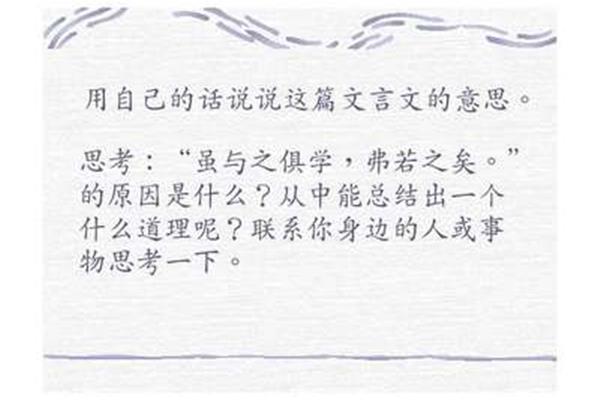 用自己的话说说这篇文言文的意思。
思考：“虽与之俱学，弗若之矣。”
的原因是什么？从中能总结出一个
什么道理呢？联系你身边的人或事
物思考一下。